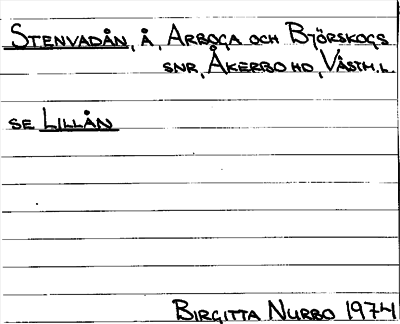 STENVADÅN, Å, ARBOGA OCH BJÖRSKOGS
SNR, ÅKERBO HD, VÄSTM.L.
SE LILLÅN
BIRGITTA NURBO 1974